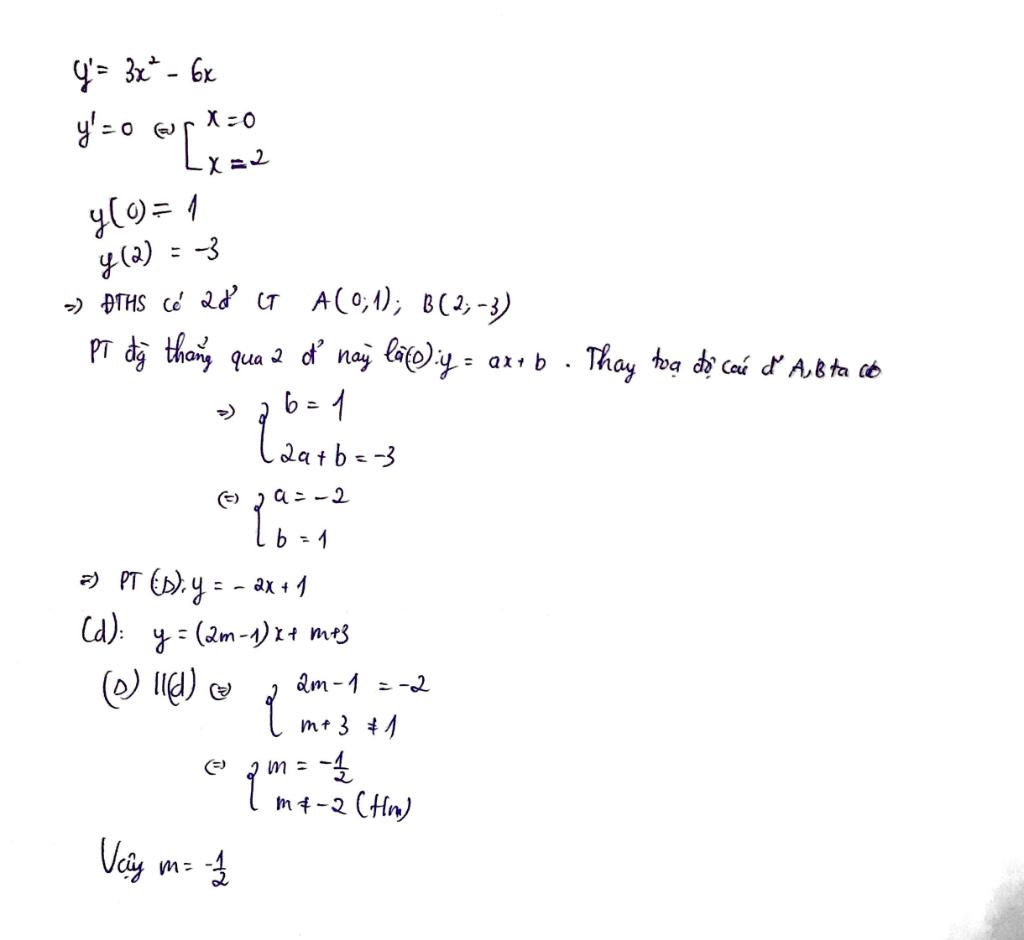 y' = 3x² - 6x
y' = 0 ⇔ [ x = 0
x = 2
y(0) = 1
y(2) = -3
⇒ ĐTHS có 2 đ' CT A(0;1); B(2;-3)
PT đg thẳng qua 2 đ' này là (D): y = ax + b. Thay toạ độ các đ' A,B ta có
⇒ { b = 1
2a + b = -3
⇔ { a = -2
b = 1
⇒ PT (D): y = -2x + 1
(d): y = (2m-1)x + m+3
(D) // (d) ⇔ { 2m-1 = -2
m+3 ≠ 1
⇔ { m = -1/2
m ≠ -2 (tm)
Vậy m = -1/2